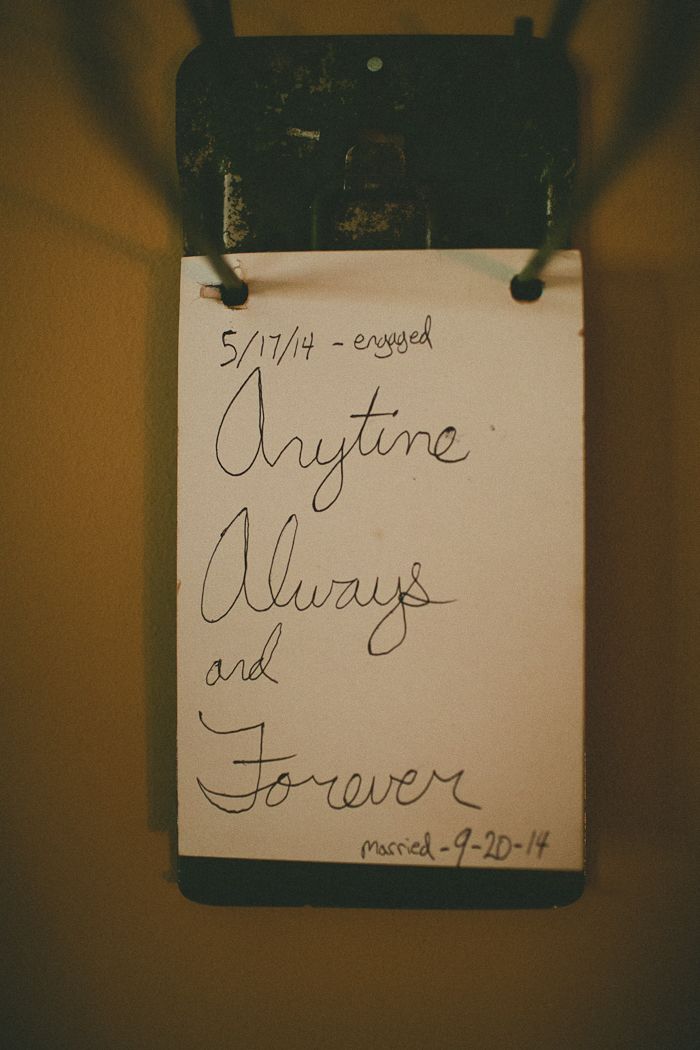 5/17/14 - engaged
Anytime
Always
and
Forever
married - 9-20-14